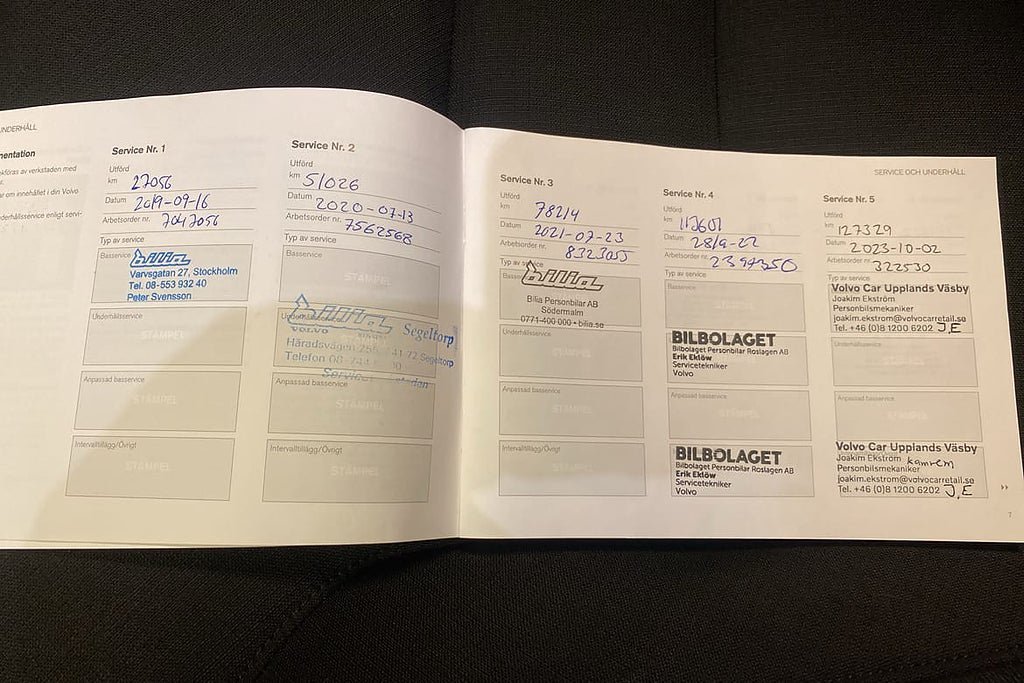 UNDERHÅLL
mentation
Service Nr. 1
Utförd
km 27056
Datum 2019-09-16
Arbetsorder nr. 7047056
Typ av service
Basservice
bilia
Varvsgatan 27, Stockholm
Tel. 08-553 932 40
Peter Svensson
Underhållsservice
STÄMPEL
Anpassad basservice
STÄMPEL
Intervalltillägg/Övrigt
STÄMPEL
Service Nr. 2
Utförd
km 51026
Datum 2020-07-13
Arbetsorder nr. 7562568
Typ av service
Basservice
STÄMPEL
bilia Segeltorp
VOLVO
Häradsvägen 41 72 Segeltorp
Telefon 08-744
Anpassad basservice
STÄMPEL
Intervalltillägg/Övrigt
STÄMPEL
SERVICE OCH UNDERHÅLL
Service Nr. 3
Utförd
km 78214
Datum 2021-07-23
Arbetsorder nr. 8323055
Typ av service
bilia
Bilia Personbilar AB
Södermalm
0771-400 000 • bilia.se
Underhållsservice
STÄMPEL
Anpassad basservice
STÄMPEL
Intervalltillägg/Övrigt
STÄMPEL
Service Nr. 4
Utförd
km 113601
Datum 28/9-22
Arbetsorder nr. 2397350
Typ av service
Basservice
STÄMPEL
BILBOLAGET
Bilbolaget Personbilar Roslagen AB
Erik Eklöw
Servicetekniker
Volvo
Anpassad basservice
STÄMPEL
BILBOLAGET
Bilbolaget Personbilar Roslagen AB
Erik Eklöw
Servicetekniker
Volvo
Service Nr. 5
Utförd
km 127329
Datum 2023-10-02
Arbetsorder nr. 322530
Typ av service
Volvo Car Upplands Väsby
Joakim Ekström
Personbilsmekaniker
joakim.ekstrom@volvocarretail.se
Tel. +46 (0)8 1200 6202 J.E
Underhållsservice
STÄMPEL
Anpassad basservice
STÄMPEL
Volvo Car Upplands Väsby
Joakim Ekström kamrem
Personbilsmekaniker
joakim.ekstrom@volvocarretail.se
Tel. +46 (0)8 1200 6202 J.E
7